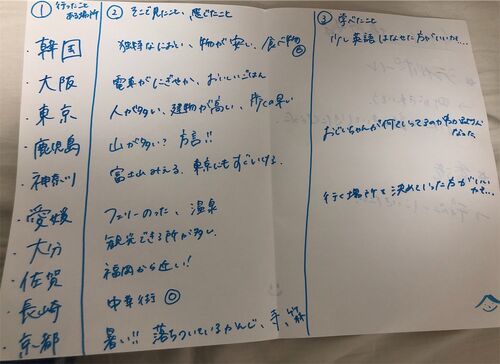 ① 行ったことある場所 ② そこで見たこと、感じたこと ③ 学べたこと
韓国 独特なにおい、物が安い、食べ物◎ 少し英語はなせた方がいいかも....
大阪 電車がにぎやか、おいしいごはん
東京 人が多い、建物が高い、歩くの早い
鹿児島 山が多い? 方言!! おじいちゃんが何ていってるのか
なった
神奈川 富士山みえる、東京にもすぐいける
愛媛 フェリーのった、温泉 行く場所を決めていった方がいい
大分 観光できる所が多い
佐賀 福岡から近い!
長崎 中華街◎
京都 暑い!! 落ちついているかんじ、寺、竹林